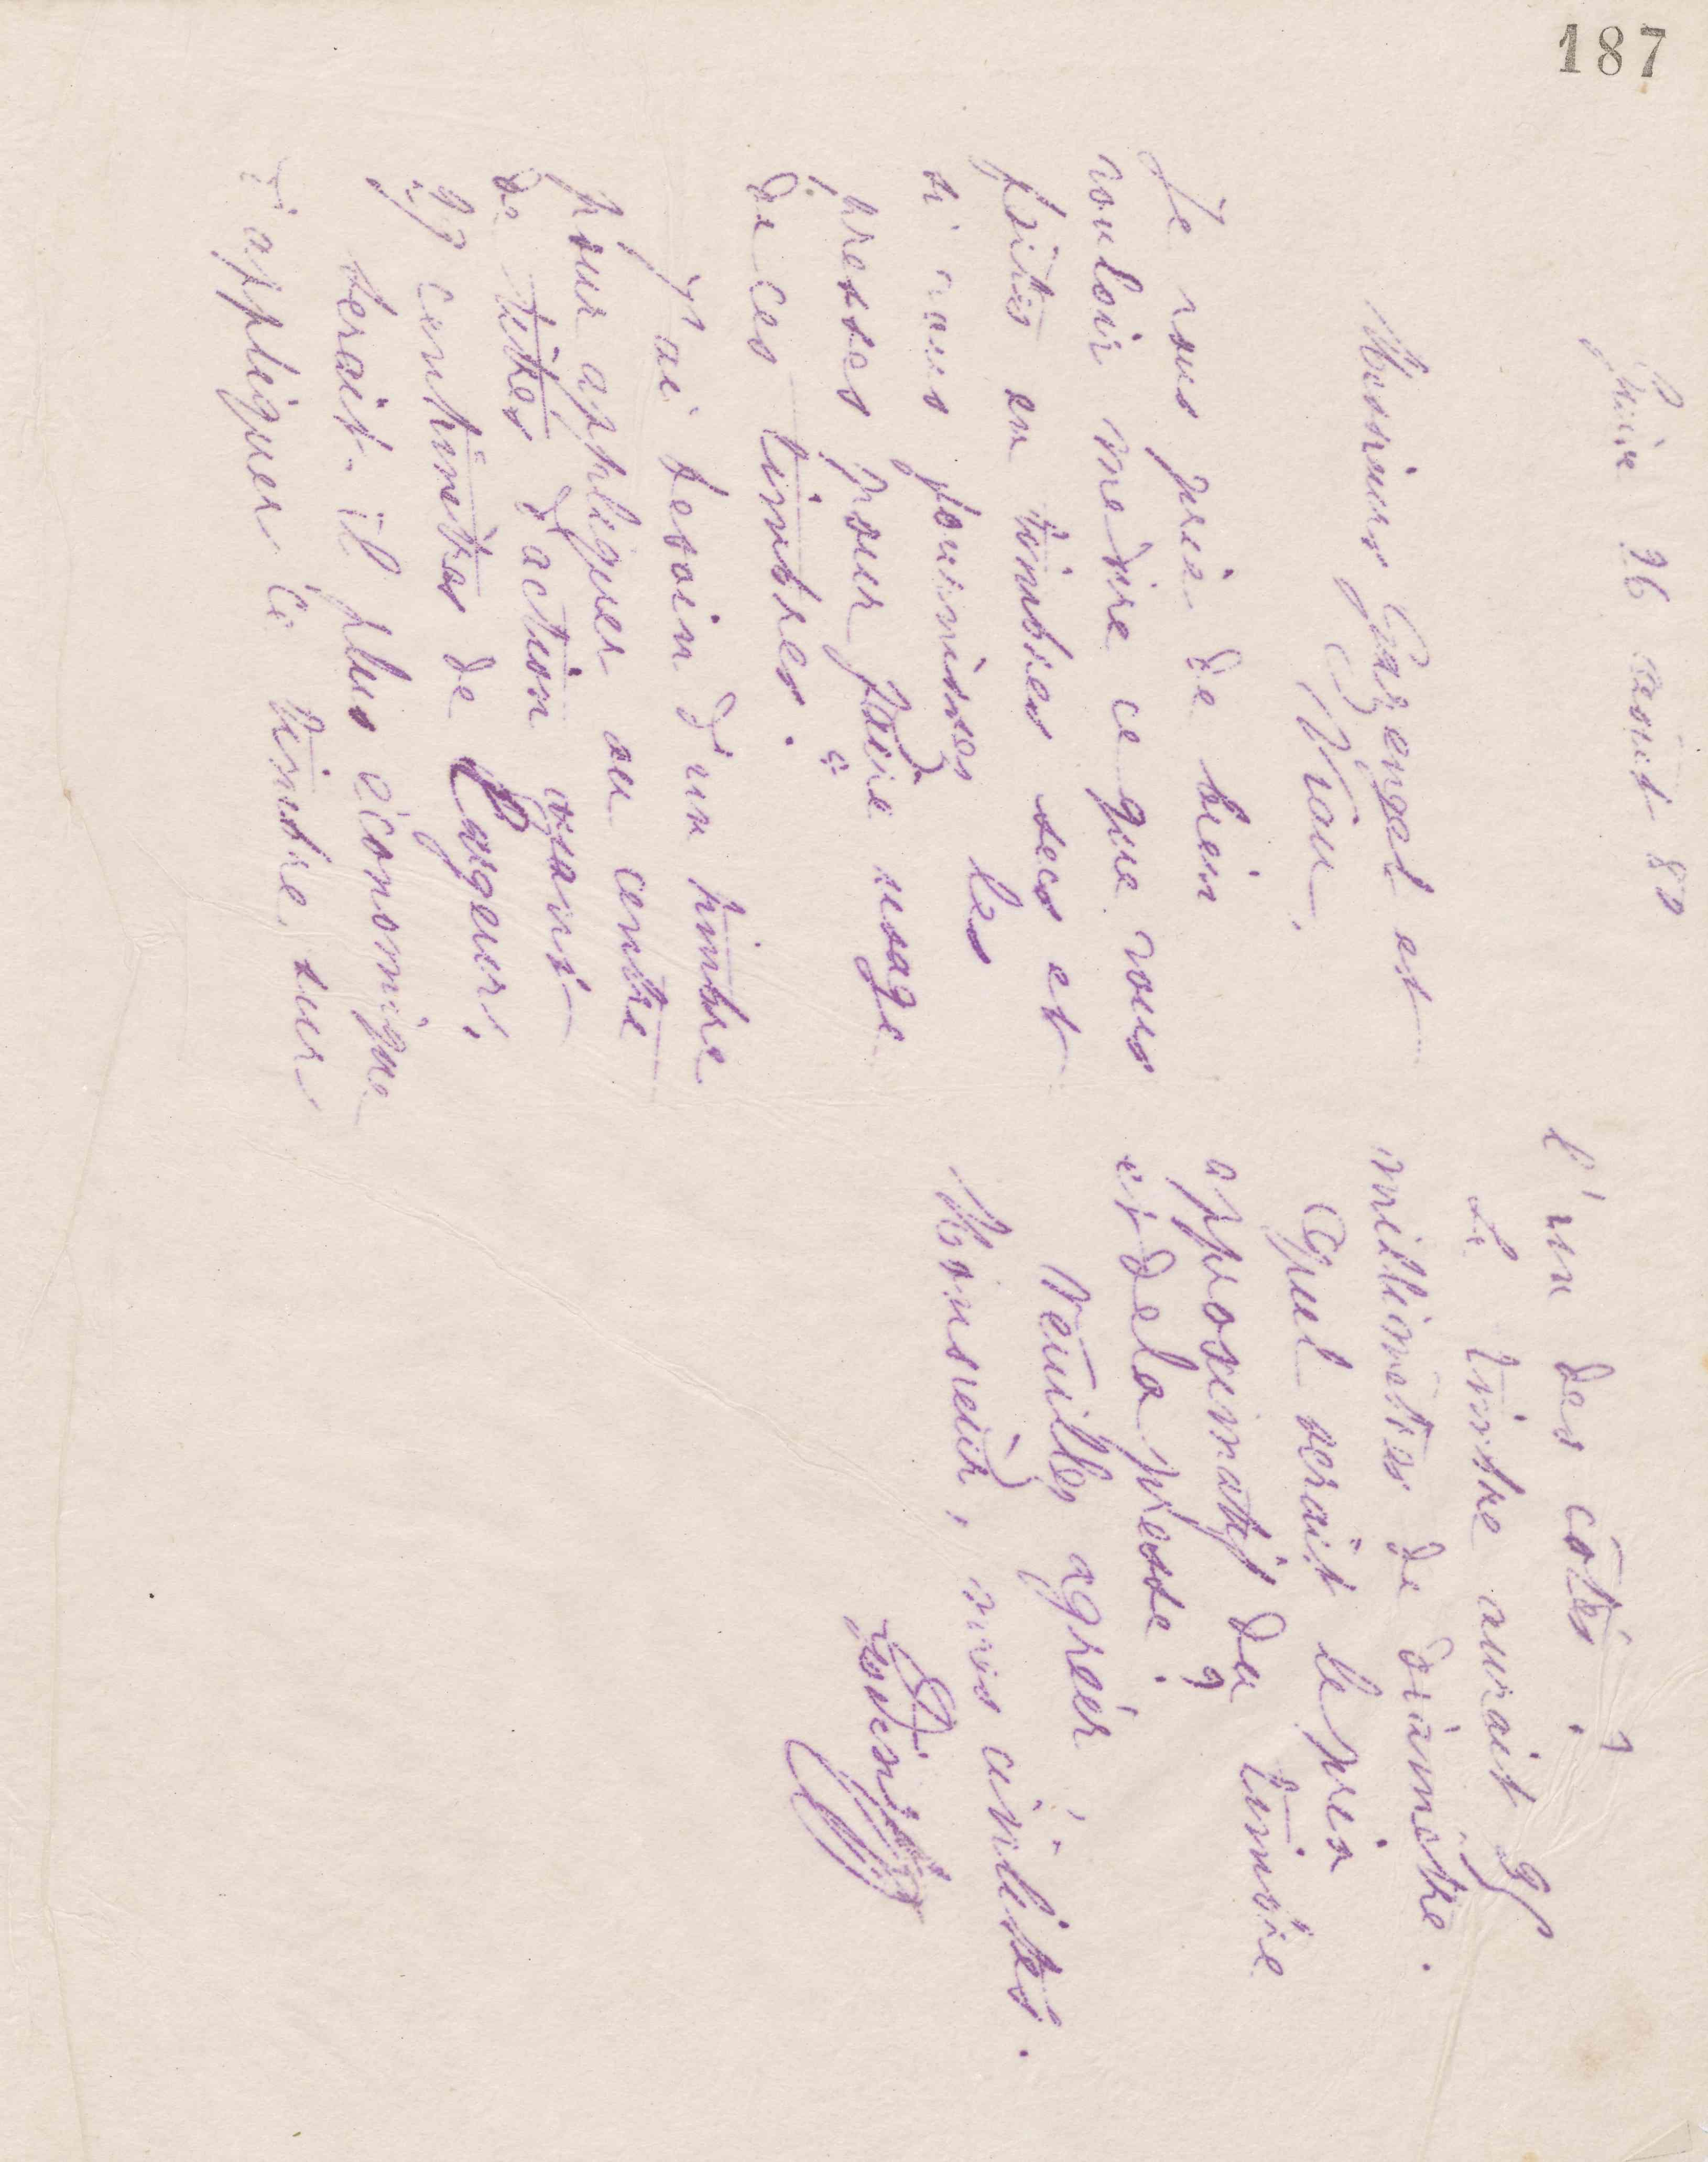 187
Guise 26 août 80
Messieurs Guzengel et
Viau,
Je vous prie de bien
vouloir me dire ce que vous
faites en timbres secs et
si vous fournissez les
presses pour faire usage
de ces timbres.
J'ai besoin d'un timbre
pour appliquer au centre
de titres d'action ayant
29 centimètres de largeur,
serait-il plus économique
d'appliquer le timbre sur
l'un des côtés ?
Le timbre aurait 95
millimètres de diamètre.
Quel serait le prix
approximatif du timbre
et de la presse ?
Veuillez agréer
Monsieur, mes civilités.
Godin